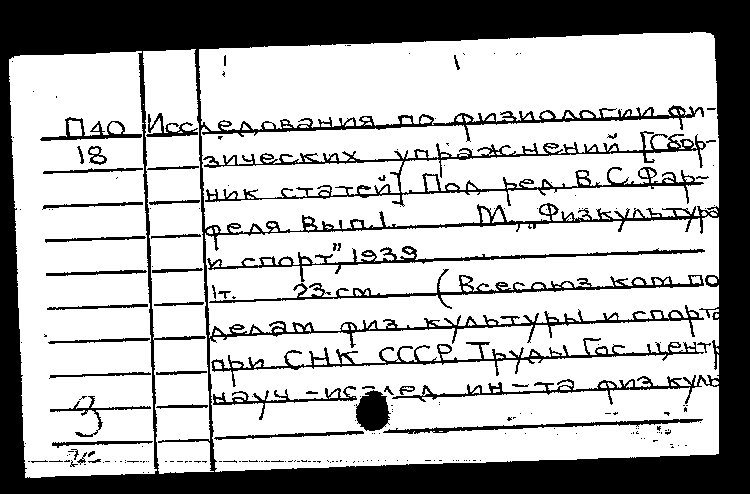 П40 Исследования по физиологии фи-
18 зических упражнений [Сбор-
ник статей]. Под ред. В.С.Фар-
феля. Вып.1. М., "Физкультура
и спорт", 1939.
1т. 23.см. (Всесоюз. ком. по
делам физ. культуры и спорта
при СНК СССР. Труды Гос. центр
науч-исслед ин-та физ куль
3